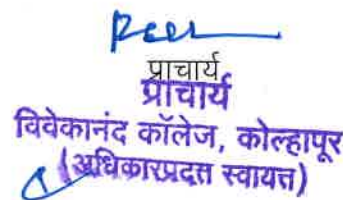 प्राचार्य
प्राचार्य
विवेकानंद कॉलेज, कोल्हापूर
(अधिकारप्रदत्त स्वायत्त)